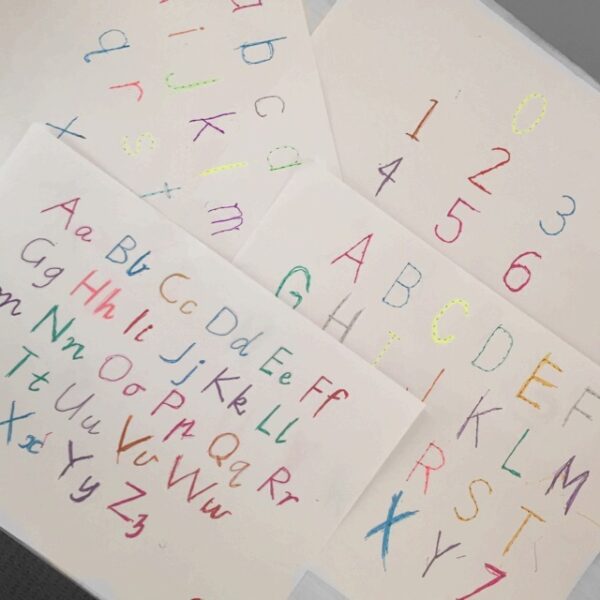 i b
q j c
r k d
x s l
t m
0
1 2 3
4 5 6
A B C D E F
G H I J K L M
R S T
X Y
Aa Bb Cc Dd Ee Ff
Gg Hh Ii Jj Kk Ll
m Nn Oo Pp Qq Rr
Tt Uu Vv Ww
Xx Yy Zz